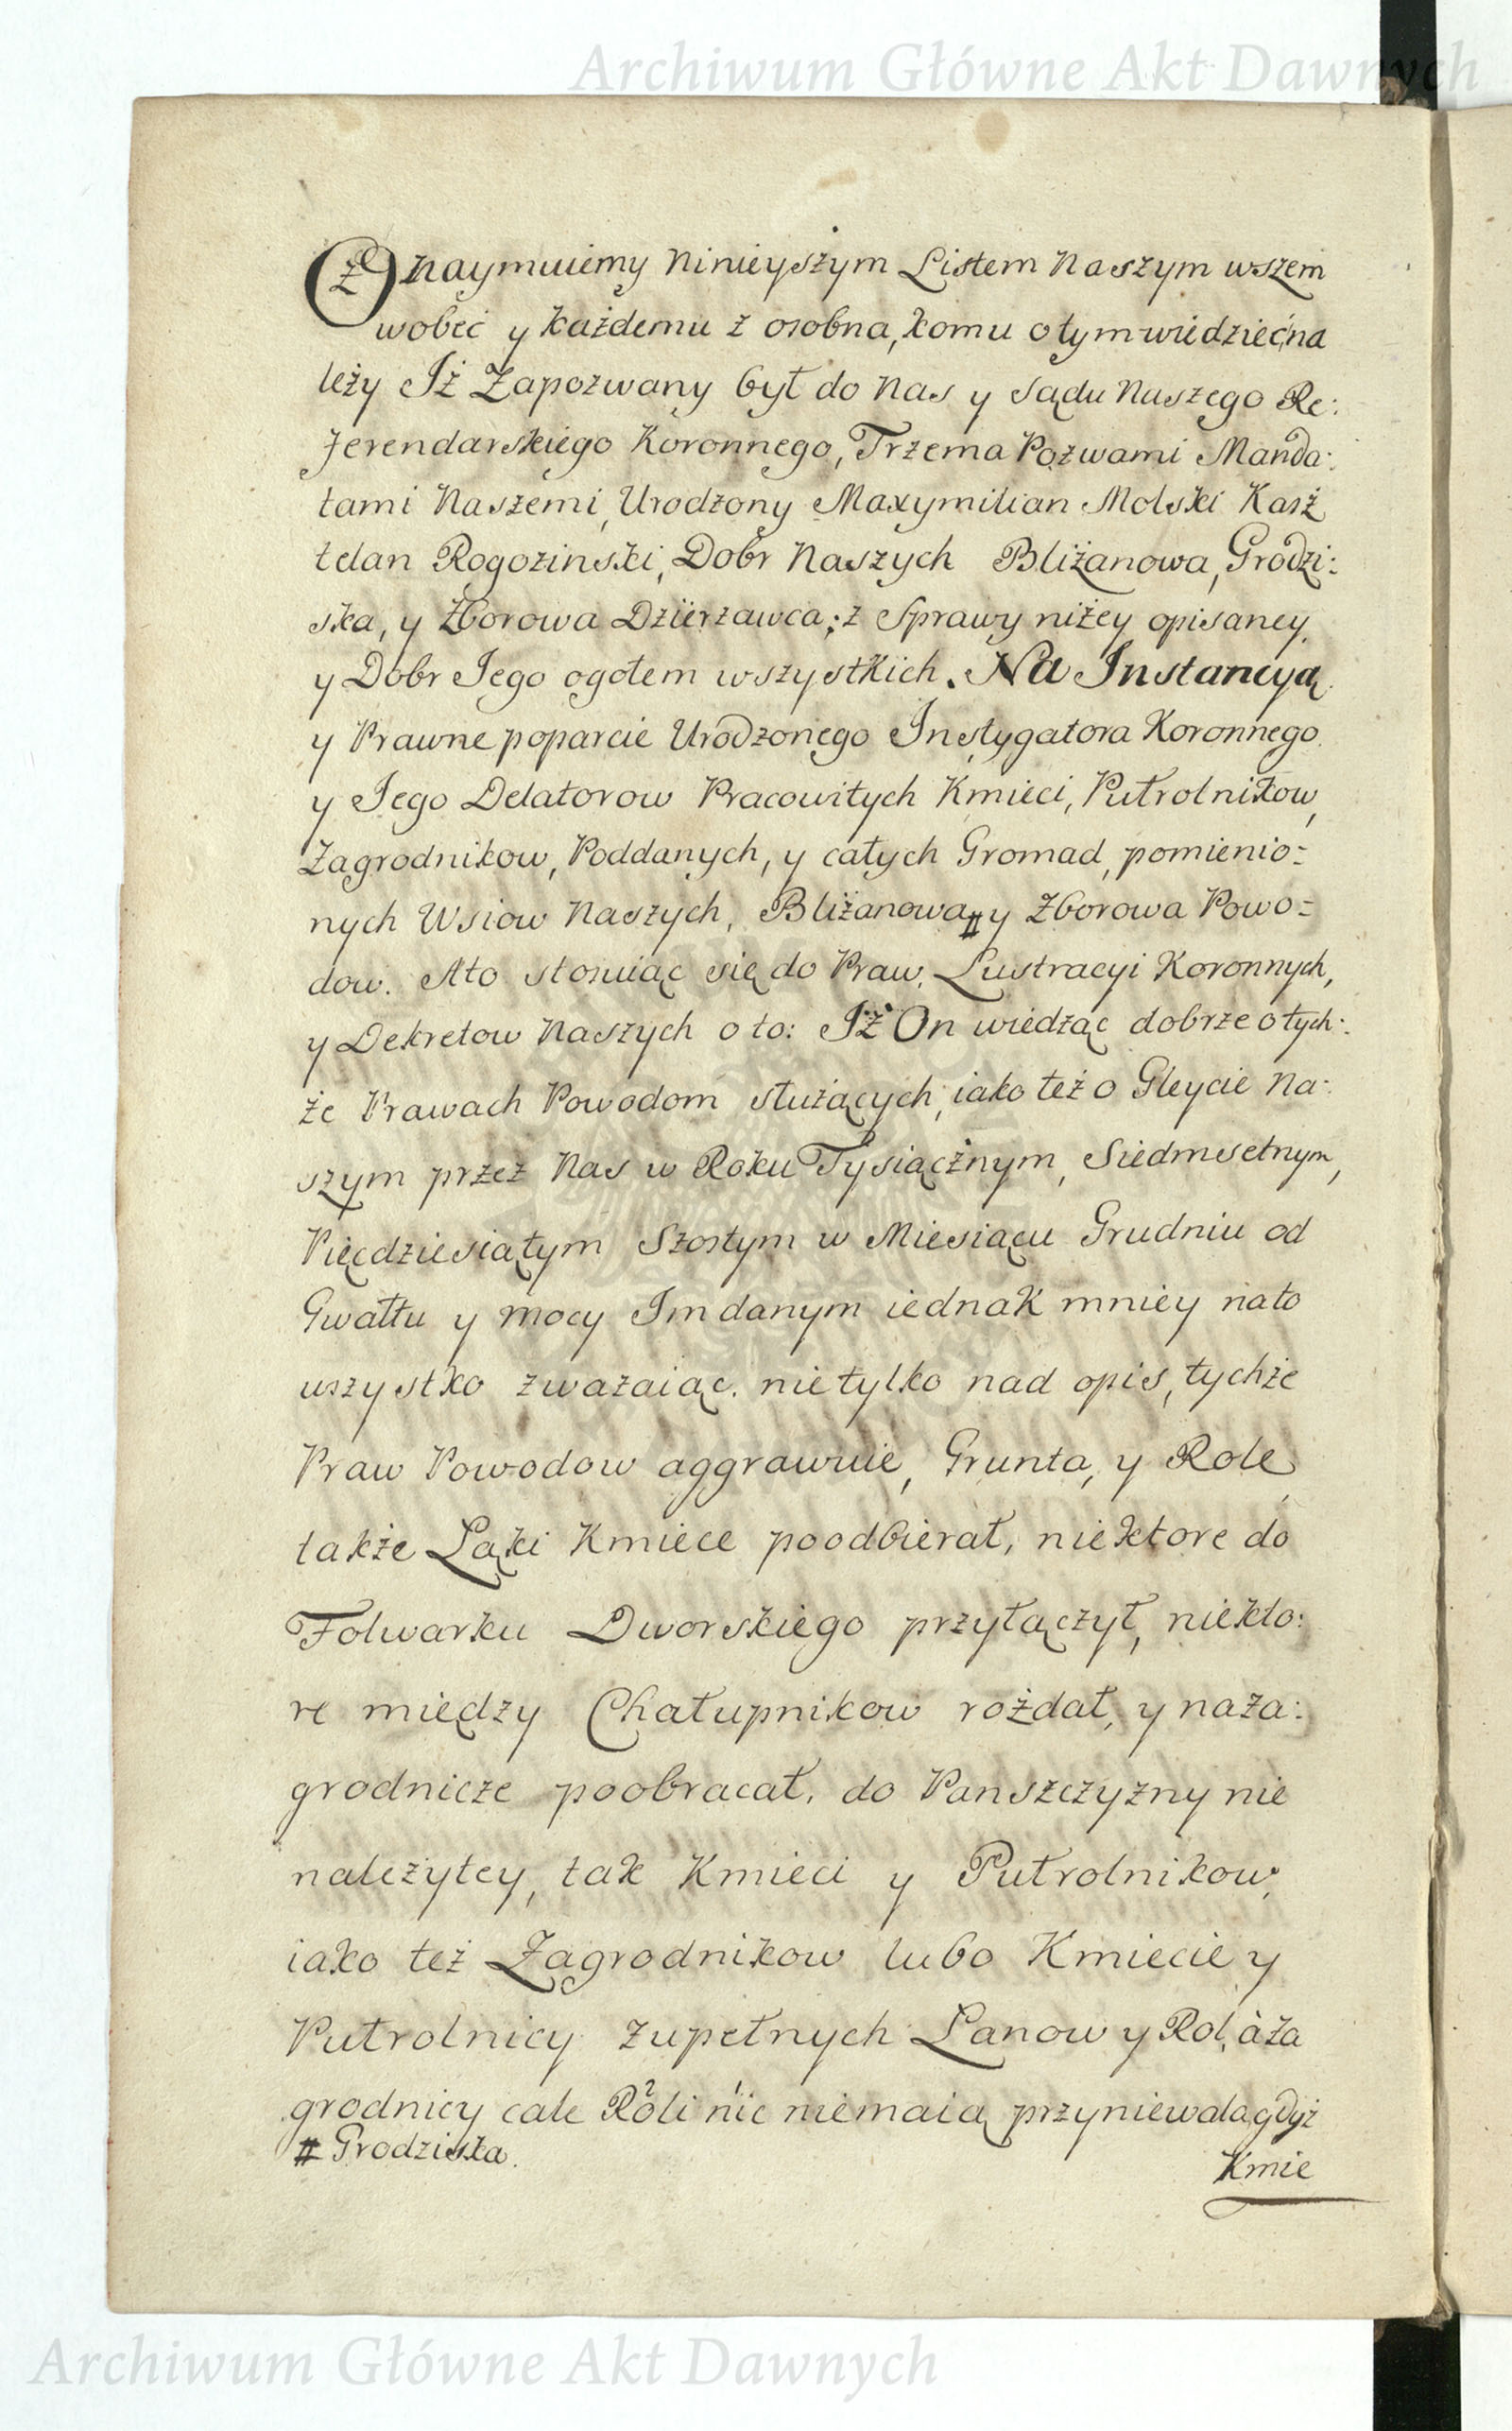 Archiwum Główne Akt Dawnych
Oznaymuiemy Ninieyszym Listem Naszym wszem
wobec y każdemu z osobna, komu o tym wiedzieć na
leży Iż Zapozwany był do Nas y Sądu Naszego Re:
ferendarskiego Koronnego, Trzema Pozwami Manda:
tami Naszemi, Urodzony Maxymilian Molski Kasz
telan Rogozinski, Dobr Naszych Bliżanowa, Grodzi:
ska, y Zborowa Dzierzawca; z Sprawy niżey opisaney
y Dobr Jego ogołem wszystkich. Na Instancyą
y Prawne poparcie Urodzonego Instygatora Koronnego
y Jego Delatorow Pracowitych Kmieci, Pułrolnikow,
Zagrodnikow, Poddanych, y całych Gromad, pomienio=
nych Wsiow Naszych, Bliżanowa # y Zborowa Powo=
dow. Ato stosuiąc się do Praw, Lustracyi Koronnych,
y Dekretow Naszych o to: Iż On wiedząc dobrze o tych:
że Prawach Powodom służących, iako też o Gleycie Na:
szym przez Nas w Roku Tysiącznym, Siedmsetnym,
Pięcdziesiątym Szostym w Miesiącu Grudniu od
Gwałtu y mocy Im danym iednak mniey na to
wszystko zważaiąc. nie tylko nad opis, tychże
Praw Powodow aggrawuie, Grunta, y Role
także Łąki Kmiece poodbierał, niektore do
Folwarku Dworskiego przyłączył, niekto:
re między Chałupnikow rozdał, y na za:
grodnicze poobracał, do Panszczyzny nie
należytey, tak Kmieci y Pułrolnikow,
iako też Zagrodnikow lubo Kmiecie y
Pułrolnicy zupełnych Łanow y Rol, a za
grodnicy cale Roli nic niemaią przyniewala, gdyż
# Grodziska.
Kmie
Archiwum Główne Akt Dawnych